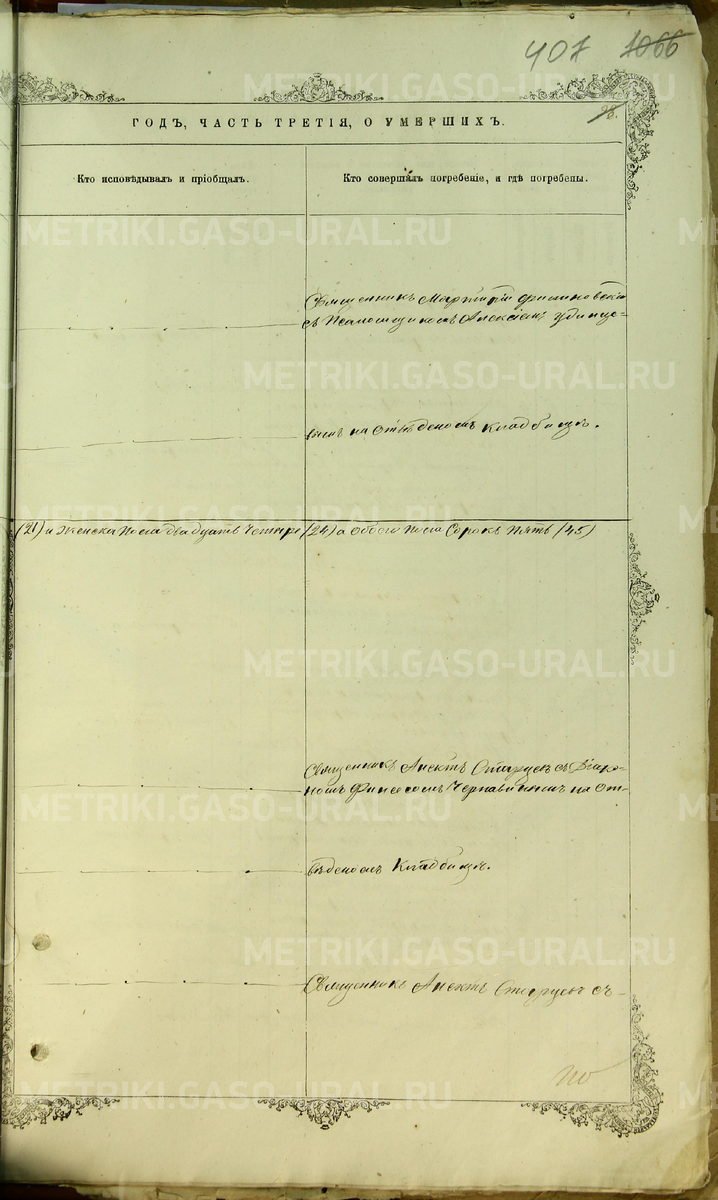 407 1066
98.
ГОДЪ, ЧАСТЬ ТРЕТІЯ, О УМЕРШИХЪ.
Кто исповѣдывалъ и пріобщалъ.
Кто совершалъ погребеніе, и гдѣ погребены.
Священникъ
съ Псаломщикомъ Алексіемъ Удинце-
вымъ на отведеномъ кладбищѣ.
(21) и Женска пола двадцать четыре (24) а обоего пола Сорокъ Пять (45)
Священникъ Старцевъ съ Діако-
номъ Финеесомъ Чернавинымъ на от-
веденомъ Кладбищѣ.
Священникъ Старцевъ съ
METRIKI.GASO-URAL.RU